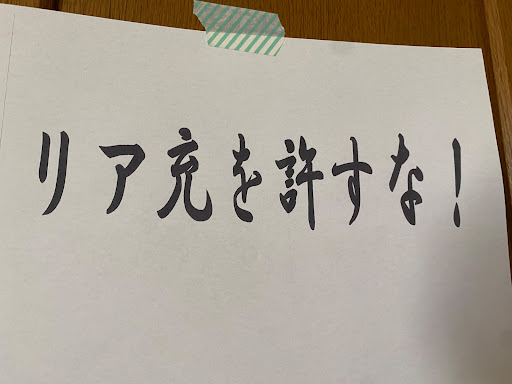 リア充を許すな!